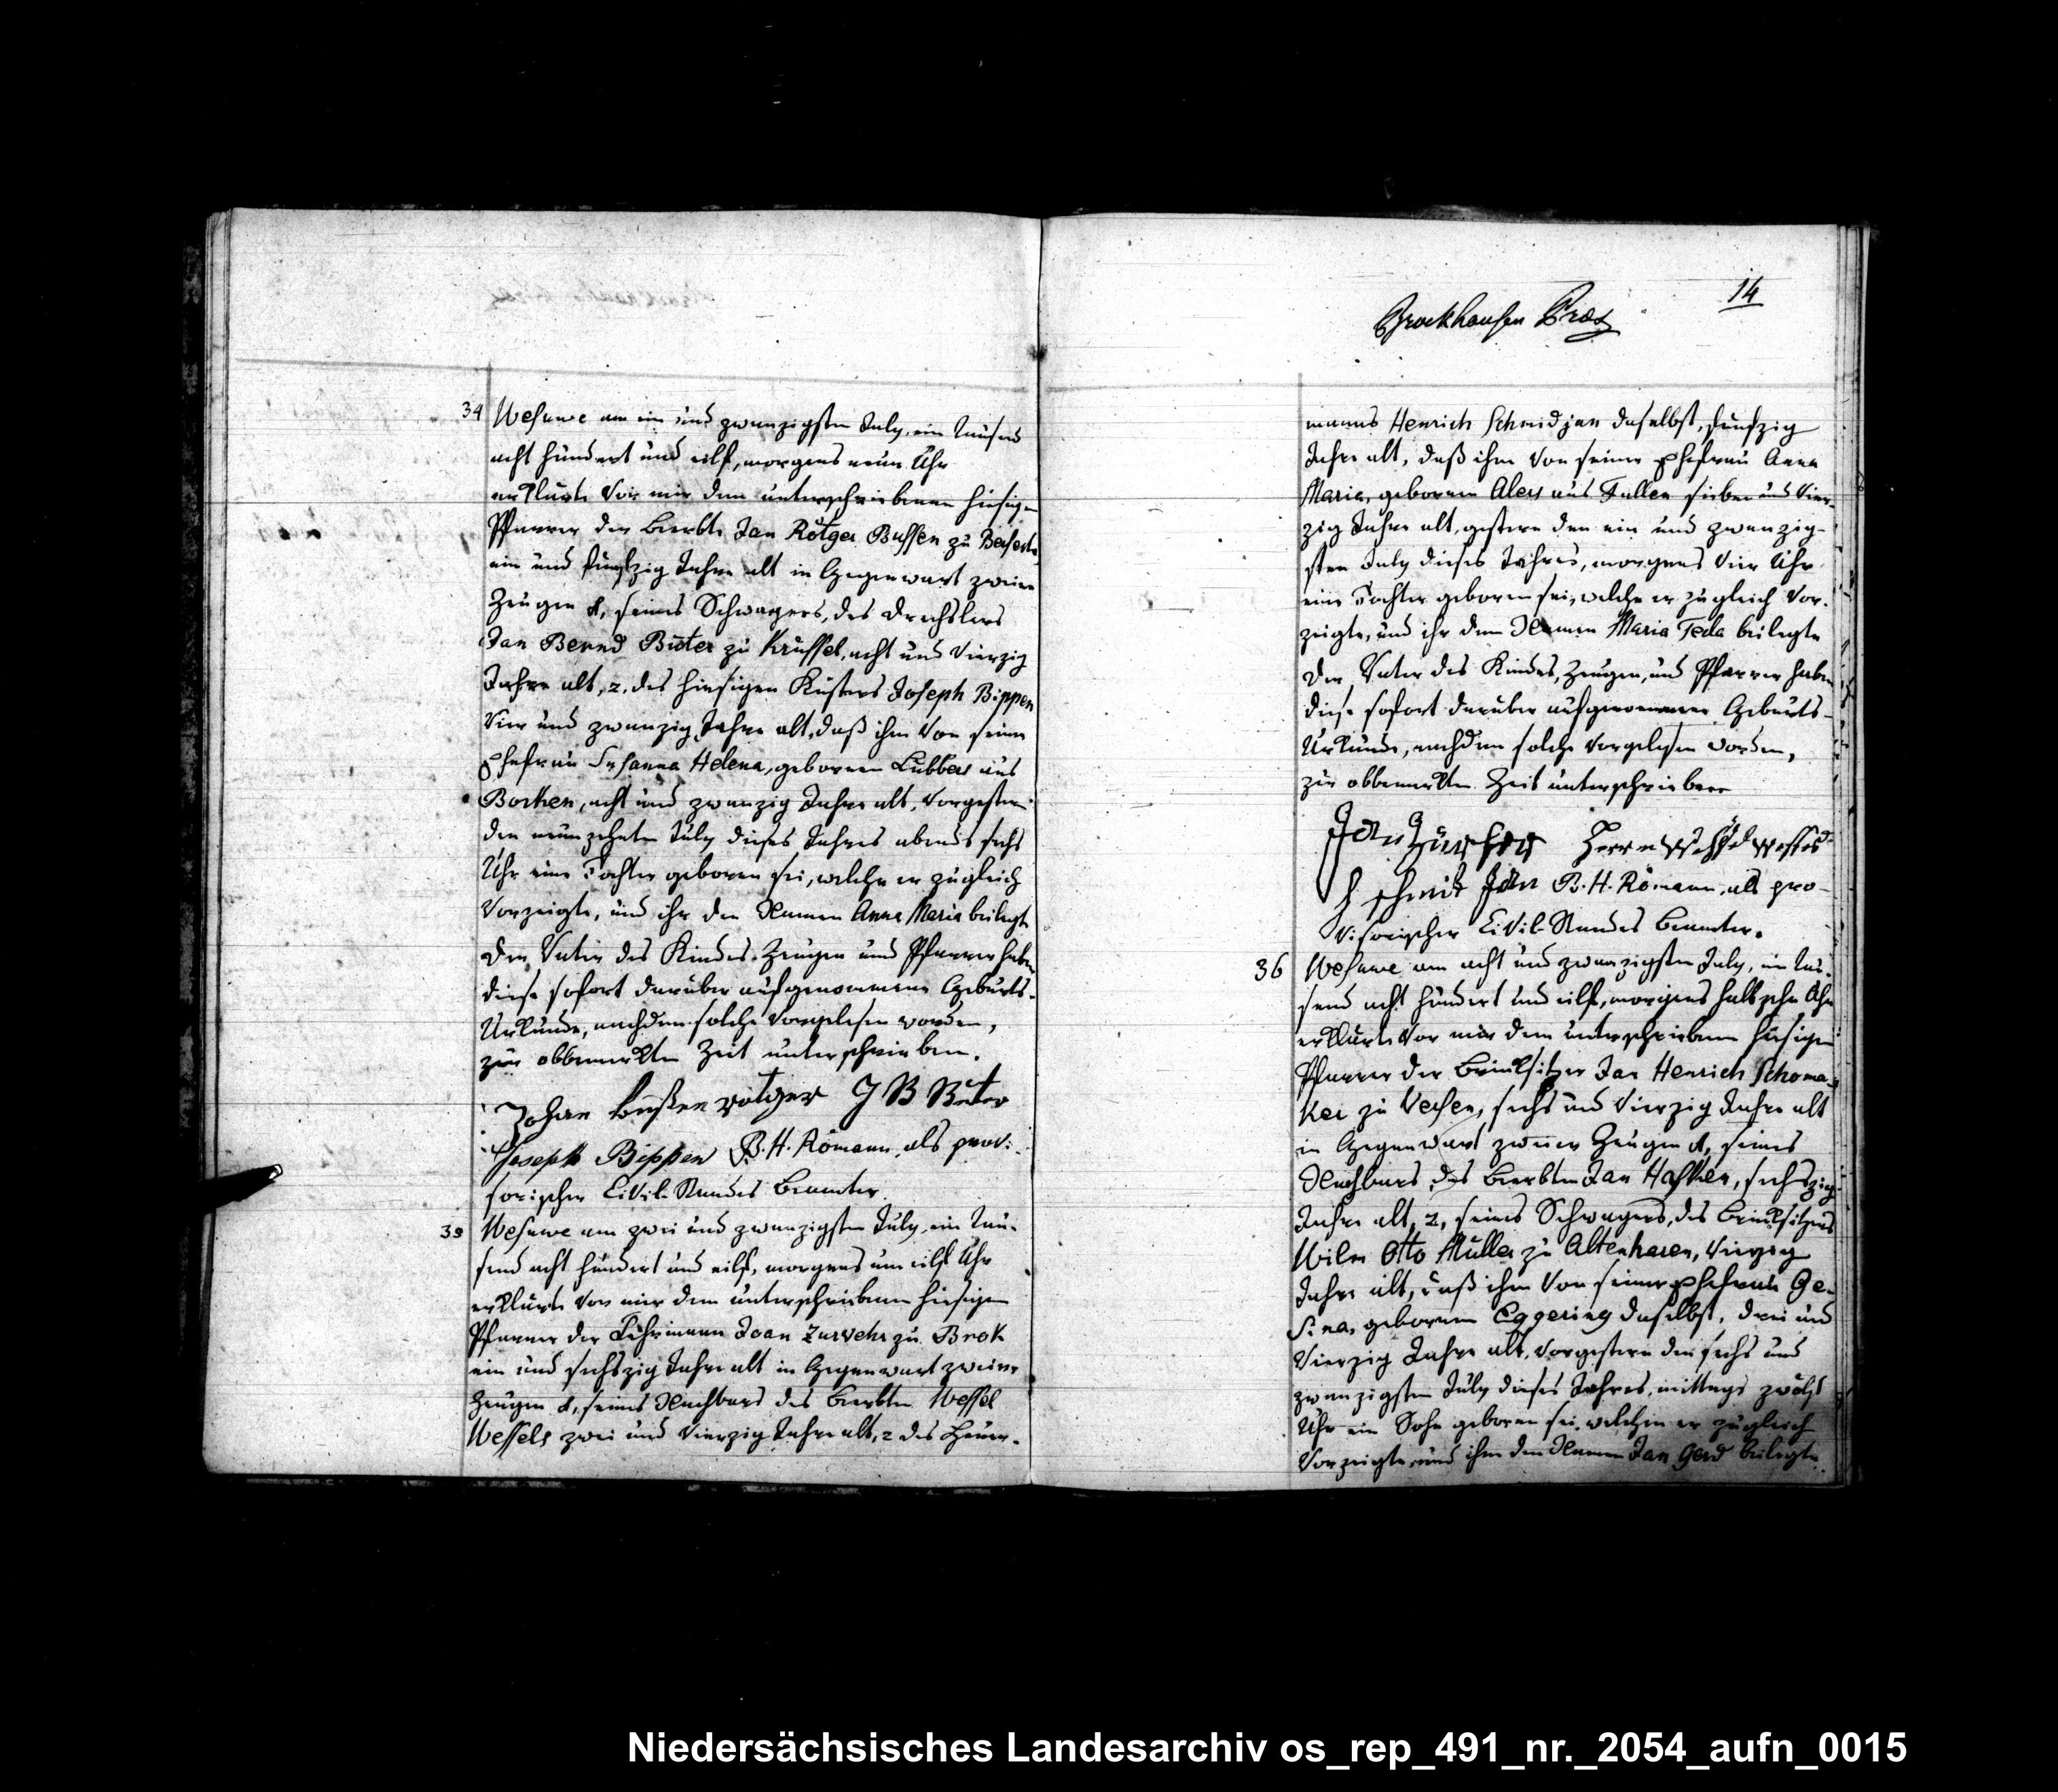 34 Wesuwe am ein und zwanzigsten July, ein tausend
acht hundert und eilf, morgens neun Uhr
erklärte vor mir dem unterschriebenen hiesigen
Pfarrer der Beerbte Jan Rötger Bussen zu
ein und fünfzig Jahre alt in Gegenwart zweier
Zeugen 1, seines Schwagers, des Drechslers
Jan Bernd Büter zu Krüssel, acht und vierzig
Jahre alt, 2, des hiesigen Küsters Joseph Bippen
vier und zwanzig Jahre alt, daß ihm von seiner
Ehefrau Susanna Helena, geborenen Lübbers aus
Borken, acht und zwanzig Jahre alt, vorgestern
den neunzehnten July dieses Jahres abends sechs
Uhr eine Tochter geboren sei, welche er zugleich
vorzeigte, und ihr den Namen Anna Maria beilegte
Der Vater des Kindes, Zeugen und Pfarrer haben
diese sofort darüber aufgenommene Geburts-
Urkunde, nachdem solche vorgelesen worden,
zur obbemerkten Zeit unterschrieben.
Johan Bußen rötger J B Büter
Joseph Bippen B. H. Römann, als provi-
sorischer Civil-Standes Beamter
35 Wesuwe am zwei und zwanzigsten July, ein tau-
send acht hundert und eilf, morgens um eilf Uhr
erklärte vor mir dem unterschriebenen hiesigen
Pfarrer der Joan Zurvehr zu Brok
ein und sechszig Jahre alt in Gegenwart zweier
Zeugen 1, seines Nachbars des Beerbten Wessel
Wessels zwei und vierzig Jahre alt, 2 des Heuer-
14
Brockhausen Præs
manns Henrich Schmidjan daselbst, fünfzig
Jahre alt, daß ihm von seiner Ehefrau Anna
Maria, geborenen Alers aus Fullen sieben und vier-
zig Jahre alt, gestern den ein und zwanzig-
sten July dieses Jahres, morgens vier Uhr
eine Tochter geboren sei, welche er zugleich vor-
zeigte, und ihr den Namen Maria Teda beilegte
Der Vater des Kindes, Zeugen, und Pfarrer haben
diese sofort darüber aufgenommene Geburts-
Urkunde, nachdem solche vorgelesen worden,
zur obbemerkten Zeit unterschrieben
Jan
H schmit Jan B. H. Römann, als pro-
visorischer Civil-Standes Beamter.
36 Wesuwe am acht und zwanzigsten July, ein tau-
send acht hundert und eilf, morgens halb zehn Uhr
erklärte vor mir dem unterschriebenen hiesigen
Pfarrer der Brinksitzer Jan Henrich Schoma-
ker zu Versen, sechs und vierzig Jahre alt
in Gegenwart zweier Zeugen 1, seines
Nachbars des Beerbten Jan, sechszig
Jahre alt, 2, seines Schwagers, des Brinksitzers
Wilm Otto Müller zu Altenharen, vierzig
Jahre alt, daß ihm von seiner Ehefrau Ge-
sina, geborenen Eggering daselbst, drei und
vierzig Jahre alt, vorgestern den sechs und
zwanzigsten July dieses Jahres, mittags zwölf
Uhr ein Sohn geboren sei, welchen er zugleich
vorzeigte, und ihm den Namen Jan Gerd beilegte
Niedersächsisches Landesarchiv os_rep_491_nr._2054_aufn_0015